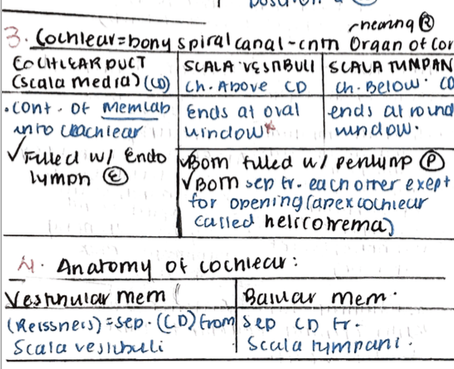 hearing Ⓡ
3. Cochlear = bony spiral canal - cntn Organ of Cor
COCHLEAR DUCT
(scala media) (CD)
SCALA VESTIBULI
ch. Above CD
SCALA TYMPAN
ch. Below. CD
• cont. of Memlab
into cochlear
Ends at oval
window*
ends at round
window.
✓ Filled w/ Endo
lymph Ⓔ
✓ Both filled w/ Perilymp Ⓟ
✓ Both sep fr. each other exept
for opening (apex cochlear
called helicotrema)
4. Anatomy of cochlear:
Vestibular mem
(Reissner's) = sep. (CD) from
Scala vestibuli
Basilar mem.
Sep CD fr.
Scala tympani.